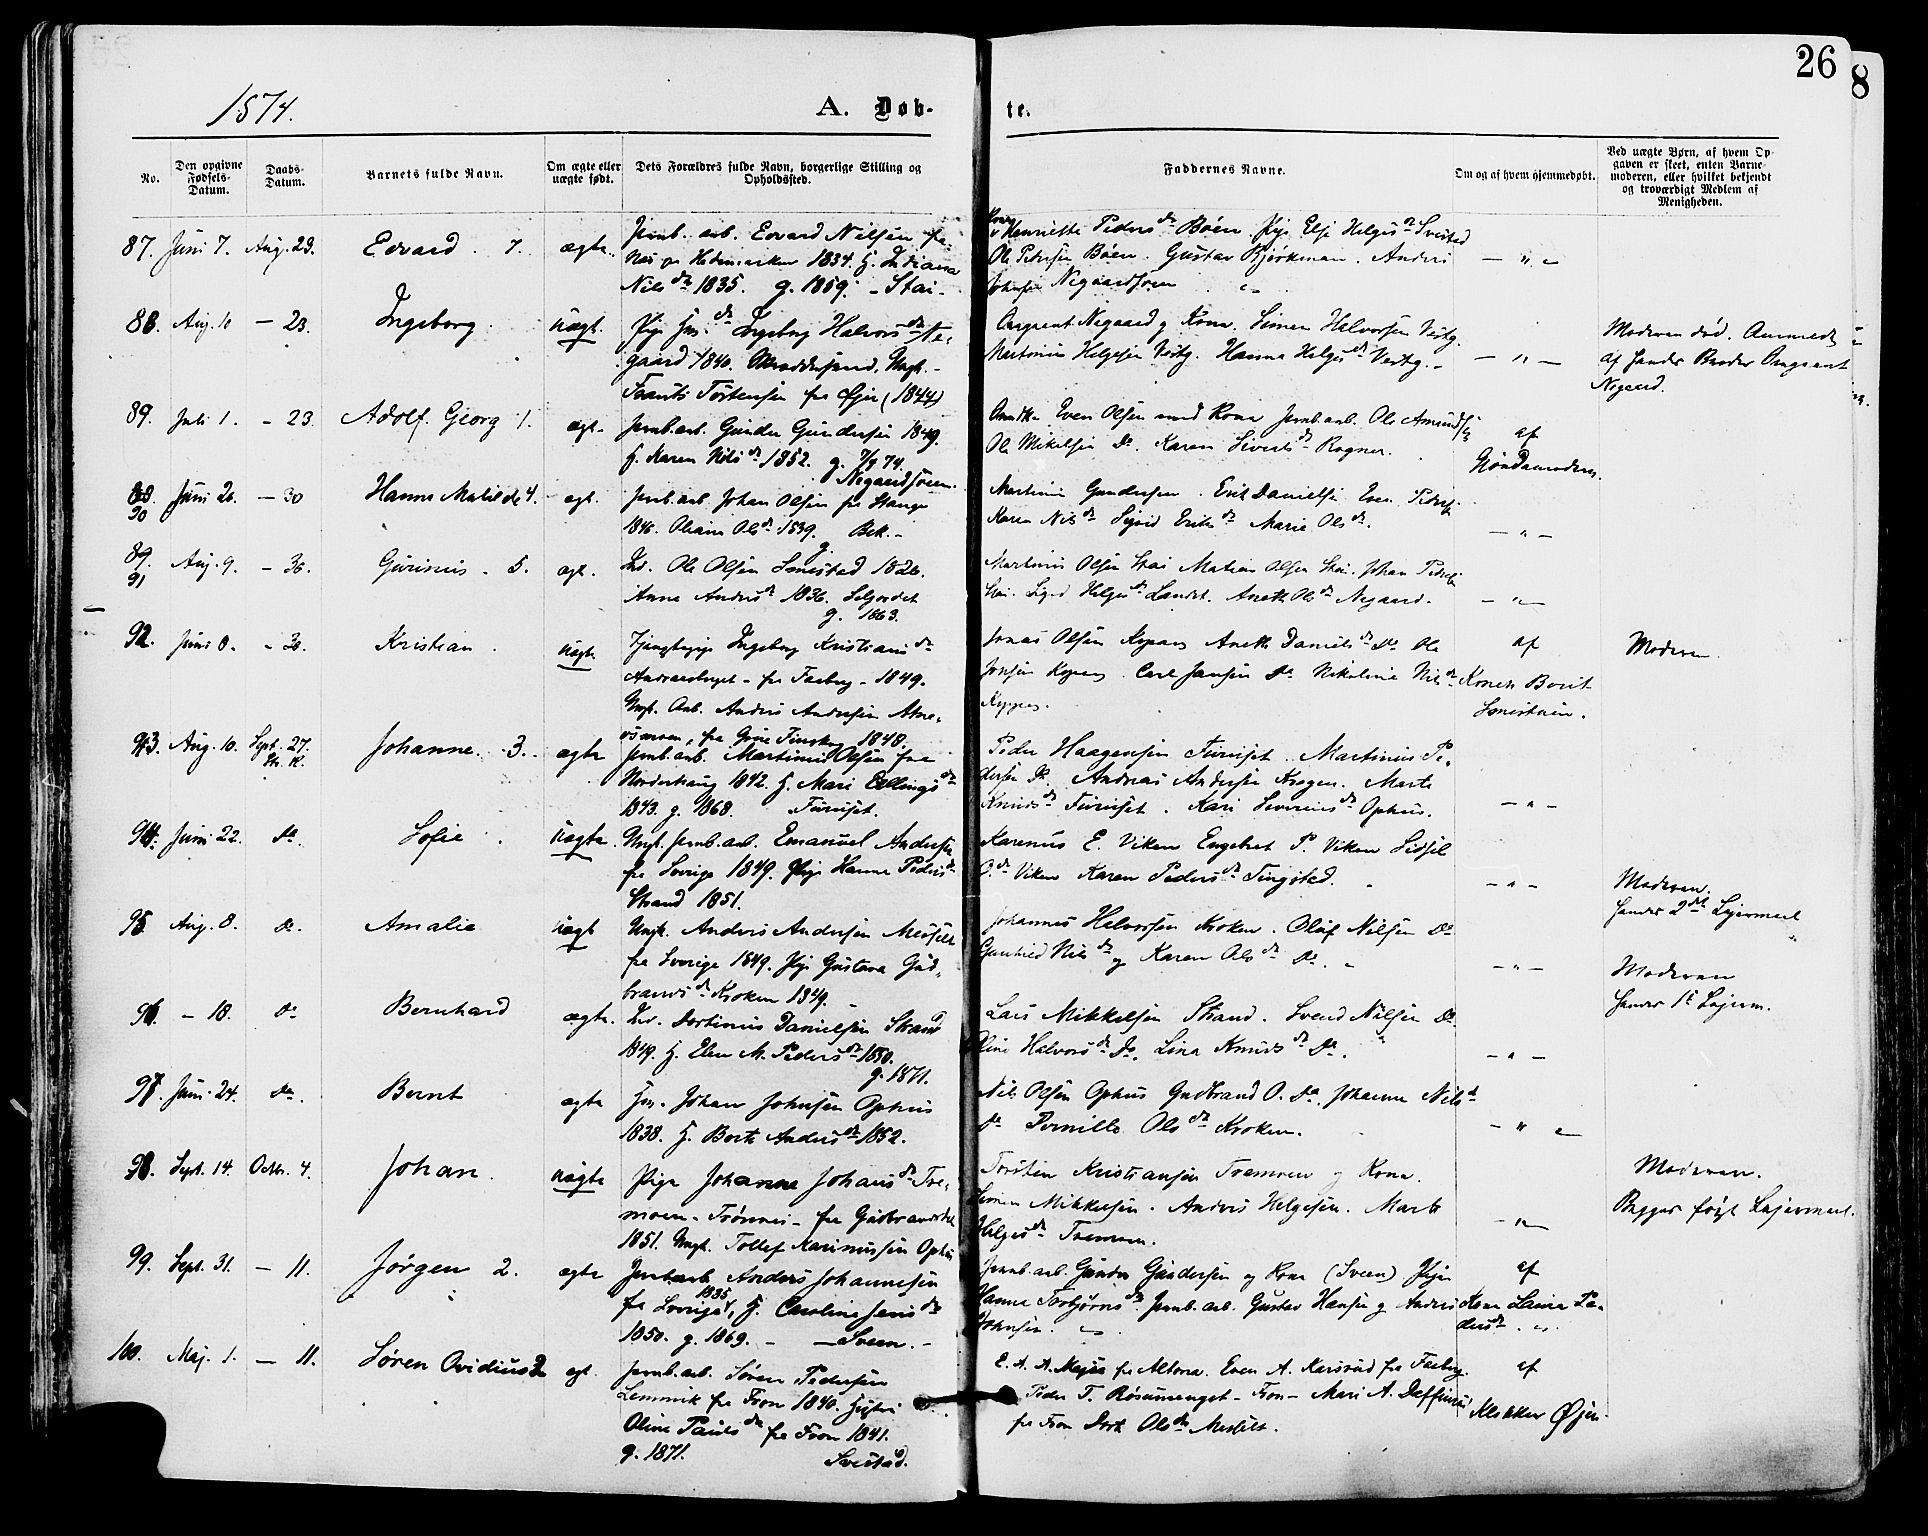 26
8
1874.
A. Døb-
te.
No.
Den opgivne
Fødsels-
Datum.
Daabs-
Datum.
Barnets fulde Navn.
Om ægte eller
uægte født.
Dets Forældres fulde Navn, borgerlige Stilling og
Opholdssted.
Faddernes Navne.
Om og af hvem hjemmedøbt.
Ved uægte Børn, af hvem Op-
gaven er skeet, enten Barne-
moderen, eller hvilket bekjendt
og troværdigt Medlem af
Menigheden.
87. Juni 7. Aug. 23. Edvard. 7. ægte
Jernb. arb. Edvard Nilsen fra
Næs paa Hedemarken 1834. H. Indiana
Nilsdr 1835. g. 1859. - Stai -
Henriette Pedersdr Bøen. Pige Elje Helgesdr Svestad
Ole Pedersen Bøen. Gustav Bjørkman. Anders
Johnsen Negaardsoen
88. Aug. 10 - 23. Ingeborg. uægt.
Pige Ingeborg Halvorsdr Ne-
gaard 1840. Ungk.
Torstensen fra Øyer (1844)
Negaard og Kone. Simen Halvorsen Vestg.
Martinus Helgesen Vestg. Hanna Helgesdr Vestg.
Moderen død. Anmeldt
af hendes Broder Amgaut
Negaard.
89. Juli 1. - 23. Adolf Georg 1. ægt.
Jernb.arb. Gunder Gundersen 1849.
H. Karen Nilsdr 1852. g. 7/4 74.
Negaardsoen.
Even Olsen med Kone Jernb.arb. Ole Amundsen
Ole Mikelsen Do. Karen Sivertsdr Rogner.
af
Gjordemoderen.
90 Juni 26. - 30 Hanna Matilde 4. ægt.
Jernb.arb. Johan Olsen fra Stange
1846. Oliana Olsdr 1839. g. Bek. -
Martinus Gundersen. Erik Danielsen Even Pedersen
Karen Nilsdr Sigrid Eriksdr Marie Olsdr.
91 Aug. 9. - 30. Gurinius. 5. ægt.
Ole Olsen Smestad 1826.
Anne Andersdr 1836. Seljordet
g. 1863.
Martinus Olsen Stai Matias Olsen Stai. Johan Pedersen
Stai. Sigrid Helgesdr Landet. Anette Olsdr Negaard.
92. Juni 8. - 30. Kristian. uægte
Tjenestepige Ingeborg Kristiansdr
- fra Faaberg - 1849.
Ungk. Arb. Anders Andersen Atne-
osmoen, fra Grue Finskog 1848.
Jonas Olsen Koppang Anette Danielsdr Do. Ole
Jonsen Koppang. Carl Jansen Do. Nikoline Nilsdr
Koppang.
af
Konen Borit
Smestuen.
Moderen.
93. Aug. 10. Sept. 27.
Str. K. Johanne. 3. ægte
Jernb.arb. Martinus Olsen fra
Norderhaug 1842. H. Mari Ellingsdr
1843. g. 1868. Furuset.
Peder Haagensen Furuset. Martinus Pe-
dersen Do. Andreas Andersen Kragen. Marte
Knudsdr Furuset. Kari Severinsdr Ophus.
94. Juni 22. Do. Sofie. uægte.
Ungk. Jernb.arb. Emanuel Andersen
fra Sverige 1849. Pige Hanna Pedersdr
Strand 1851.
Karenus E. Viken Engebret P. Viken Sidsel
O.dr Viken Karen Pedersdr Tingstad.
Moderen.
Hendes 2det Leiermaal
95 Aug. 8. Do. Amalie uægt
Ungk. Anders Andersen Messelt
fra Sverige 1849. Pige Gustava Gud-
brandsdr Kroken 1849.
Johannes Halvorsen Kroken. Oluf Nilsen Do
Gunhild Nilsdr og Karen Olsdr Do.
Moderen
Hendes 1ste Leierm.
96. - 18. Do Bernhard ægte.
Dortinius Danielsen Strand
1849. H. Elen M. Pedersdr 1850.
g. 1871.
Lars Mikkelsen Strand. Svend Nilsen Do.
Oline Halvorsdr Do. Lina Knudsdr Do.
97. Juni 24. Do. Bernt ægte
Johan Johnsen Ophus
1838. H. Borte Andersdr 1852.
Nils Olsen Ophus Gudbrand O. Do. Johanna Nilsdr
Do Pernille Olsdr Kroken.
98. Sept. 14. Octbr. 4. Johan. uægte
Pige Johanna Johansdr Tre-
moen - Trønnes - fra Gudbrandsdal
1851. Ungk. Tollef Karinussen Ophus
Torsten Kristiansen Tremoen og Kone.
Simen Mikkelsen. Anders Helgesen. Marte
Helgesdr Tremoen.
Moderen.
Begges første Leiermaal.
99. Sept. 31. - 11. Jørgen 2. ægte
Jernb.arb. Anders Johannesen
fra Sverige 1835, H. Caroline Jensdr
1850. g. 1869. - Sveen. -
Jernb.arb. Gunder Gundersen og Kone (Sveen) Pige
Hanna Torbjørnsdr. Jernb.arb. Gustav Hansen og Anders
Johnsen.
af
Kone Laura Pe-
dersdr.
100. Maj. 1. - 11. Søren Ovidius 2 ægt.
Jernb.arb. Søren Pedersen
Lemmik fra Fron 1840. Hustru
Oline Paulsdr fra Fron 1841.
g. 1871. Svestad.
E. A. A. Mejer fra Altona. Even A. Karsrud fra Faaberg
Peder T. Røsumenget - Fron - Mari A. Deffinrud
fra Fron Dorte Olsdr Messelt.
af
Klokker Øjen.